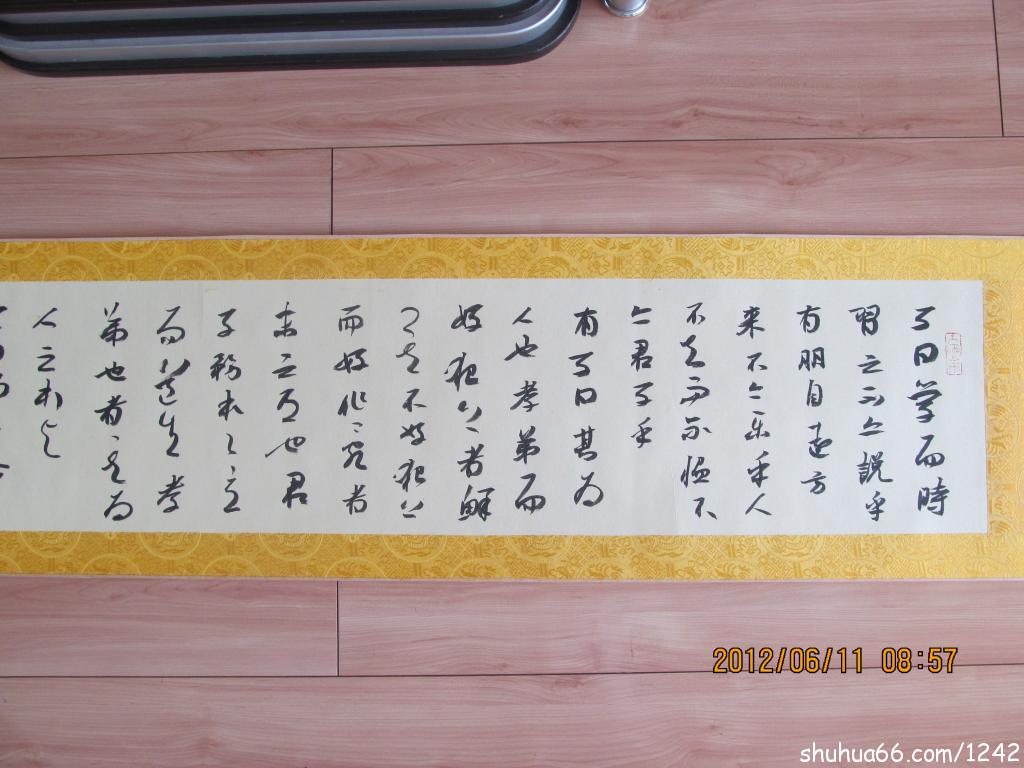 子曰学而時
習之不亦説乎
有朋自遠方
来不亦乐乎人
不知而不愠不
亦君子乎
有子曰其为
人也孝弟而
好犯上者鮮
矣不好犯上
而好作乱者
未之有也君
子務本本立
而道生孝
弟也者其为
人之本与
2012/06/11 08:57
shuhua66.com/1242